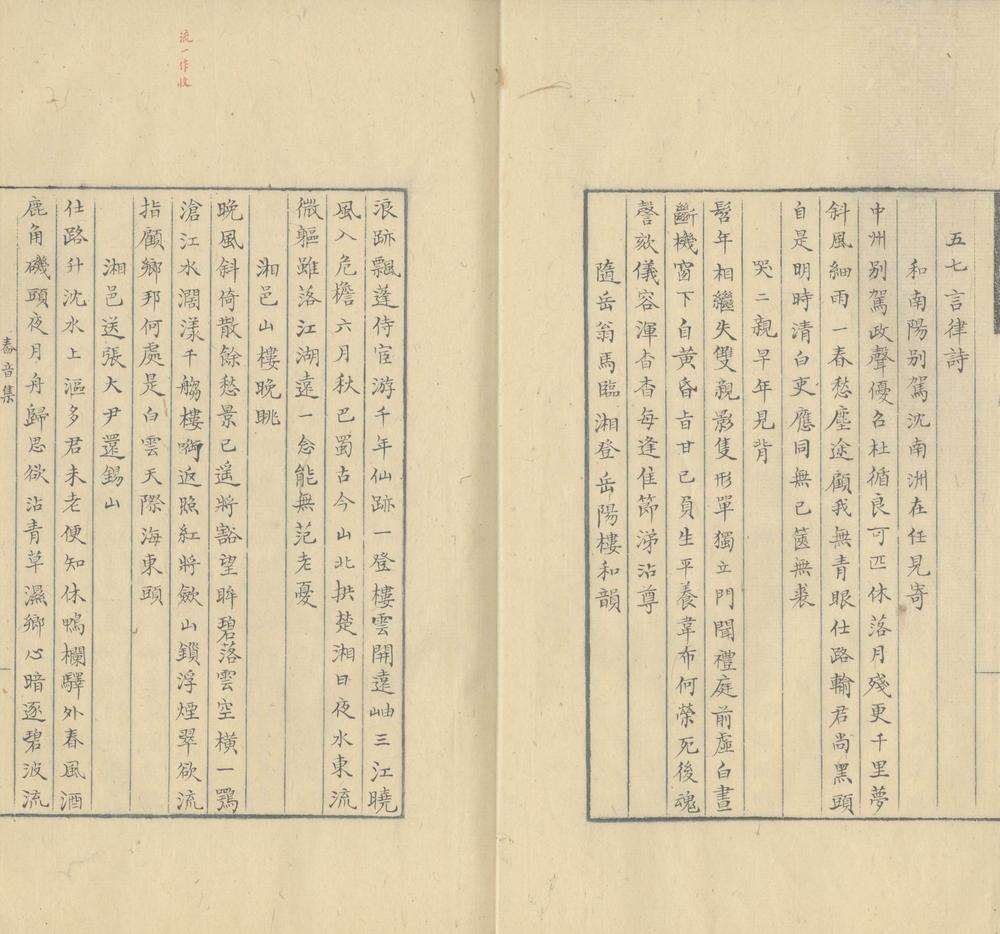 五七言律詩
和南陽别駕沈南洲在任見寄
中州别駕政聲優召杜循良可匹休落月殘更千里夢
斜風細雨一春愁塵途顧我無青眼仕路輸君尚黑頭
自是明時清白吏應同無已篋無裘
哭二親早年見背
髫年相繼失雙親影隻形單獨立門聞禮庭前虛白晝
斷機窗下自黃昏旨甘已負生平養韋布何榮死後魂
謦欬儀容渾杳杳每逢佳節涕沾尊
隨岳翁馬臨湘登岳陽樓和韻
浪跡飄蓬侍宦游千年仙跡一登樓雲開遠岫三江曉
風入危檐六月秋巴蜀古今山北拱楚湘日夜水東流
微軀雖落江湖遠一念能無范老憂
湘邑山樓晚眺
晚風斜倚散餘愁景已遥將豁望眸碧落雲空横一鶚
滄江水濶漾千艘樓啣返照紅將斂山鎖浮煙翠欲流
指顧鄉邦何處是白雲天際海東頭
湘邑送張大尹還錫山
仕路升沈水上漚多君未老便知休鴨欄驛外春風酒
鹿角磯頭夜月舟歸思欲沾青草濕鄉心暗逐碧波流
流一作收
音集